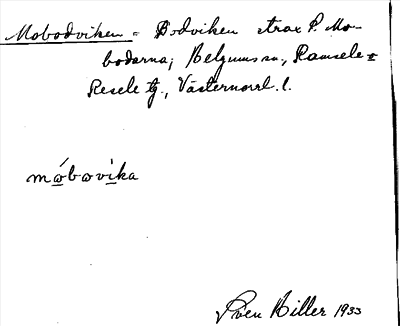 Mobodviken = Bodviken strax S. Mo-
bodarna; Helgums sn, Ramsele o
Resele tg., Västernorrl. l.
mɷ́bɷvika
Sven Hiller 1933